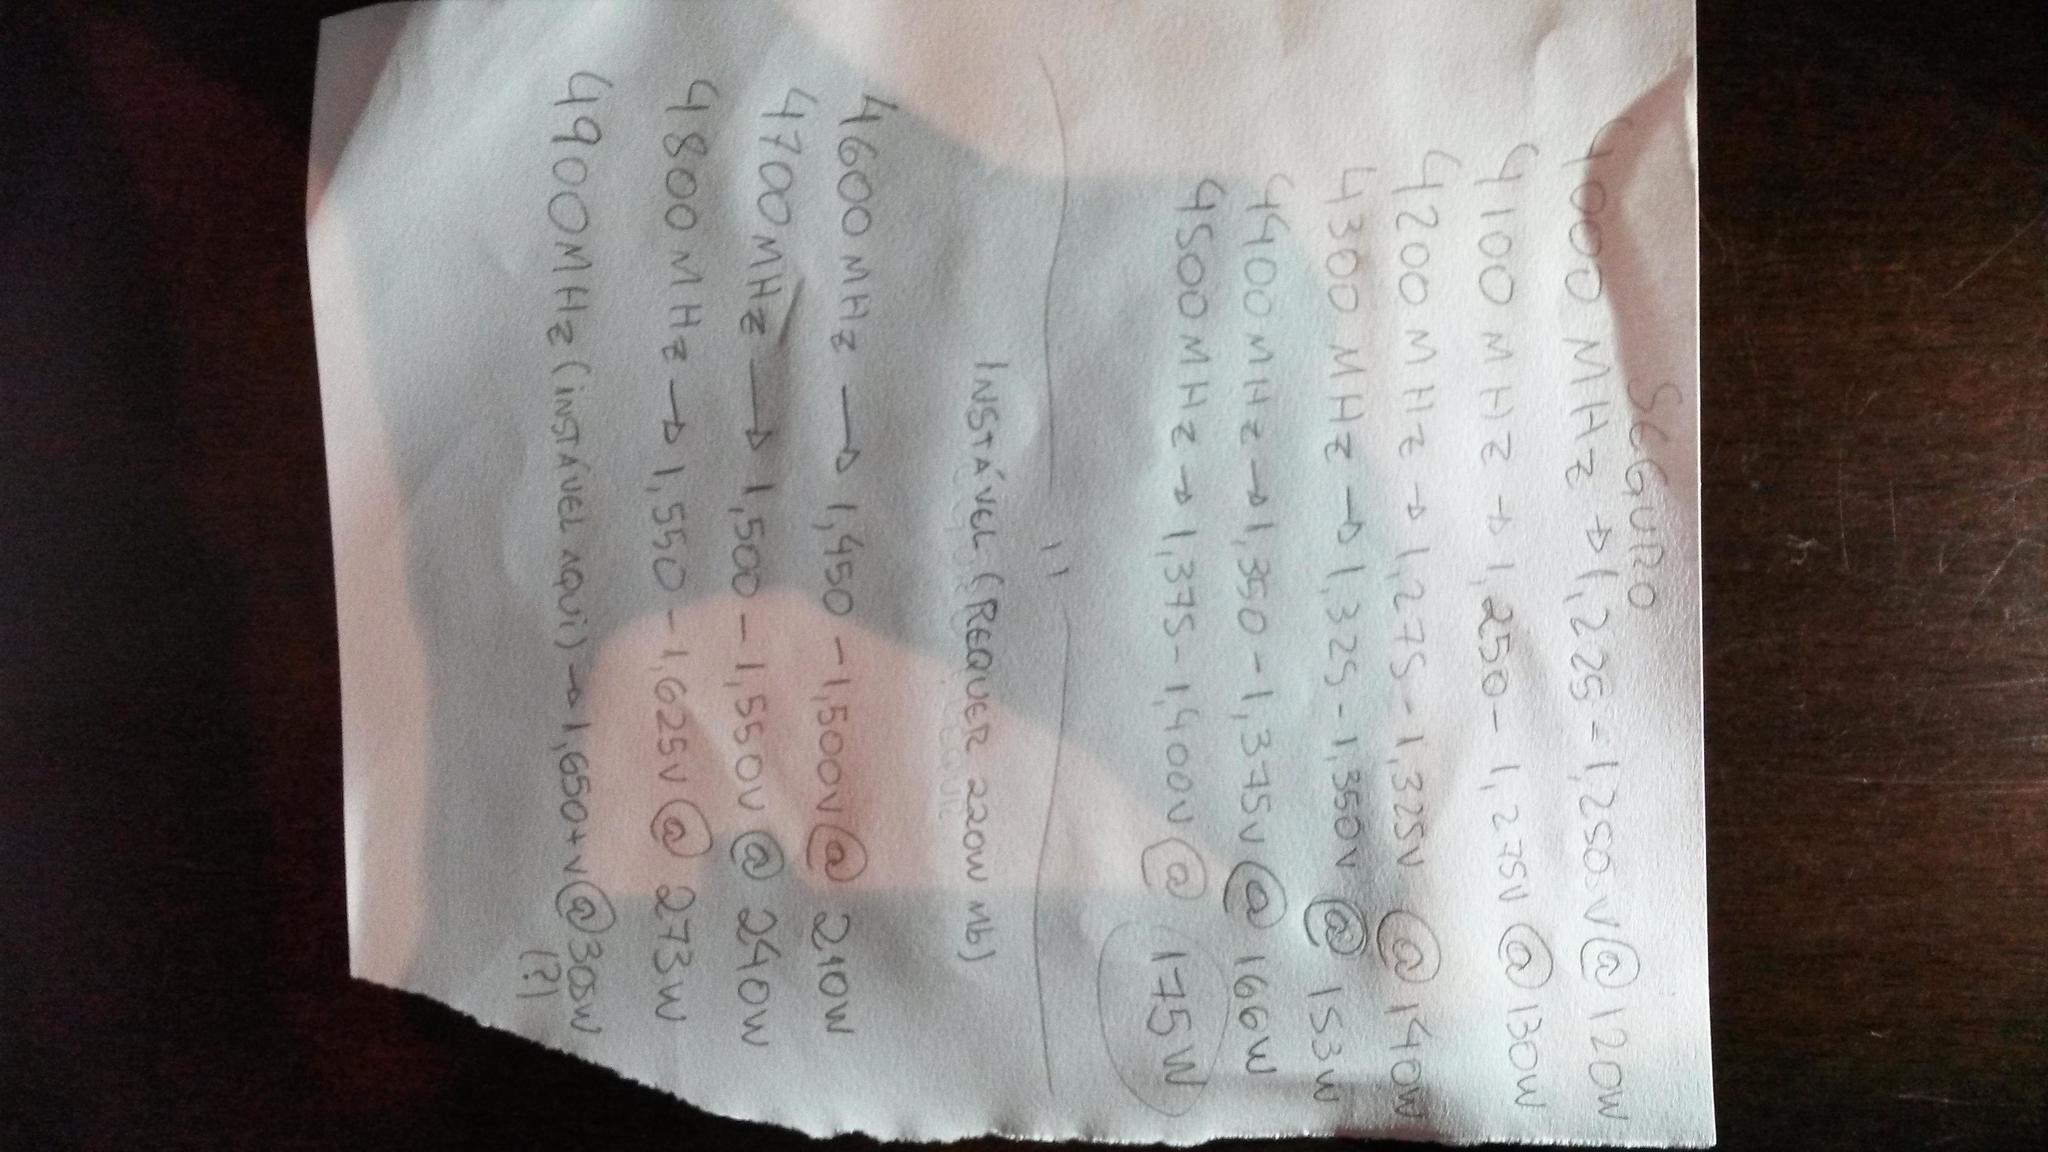 SEGURO
4000 MHz → 1,225 = 1,250v @ 120W
4100 MHz → 1,250 - 1,275v @ 130W
4200 MHz → 1,275 - 1,325v @ 140W
4300 MHz → 1,325 - 1,350v @ 153W
4400 MHz → 1,350 - 1,375v @ 166W
4500 MHz → 1,375 - 1,400v @ 175W
INSTÁVEL (REQUER 220W Mb)
4600 MHz → 1,450 - 1,500v @ 210W
4700 MHz → 1,500 - 1,550v @ 240W
4800 MHz → 1,550 - 1,625v @ 273W
4900MHz (INSTÁVEL AQUI) → 1,650+v @ 305W
(?)